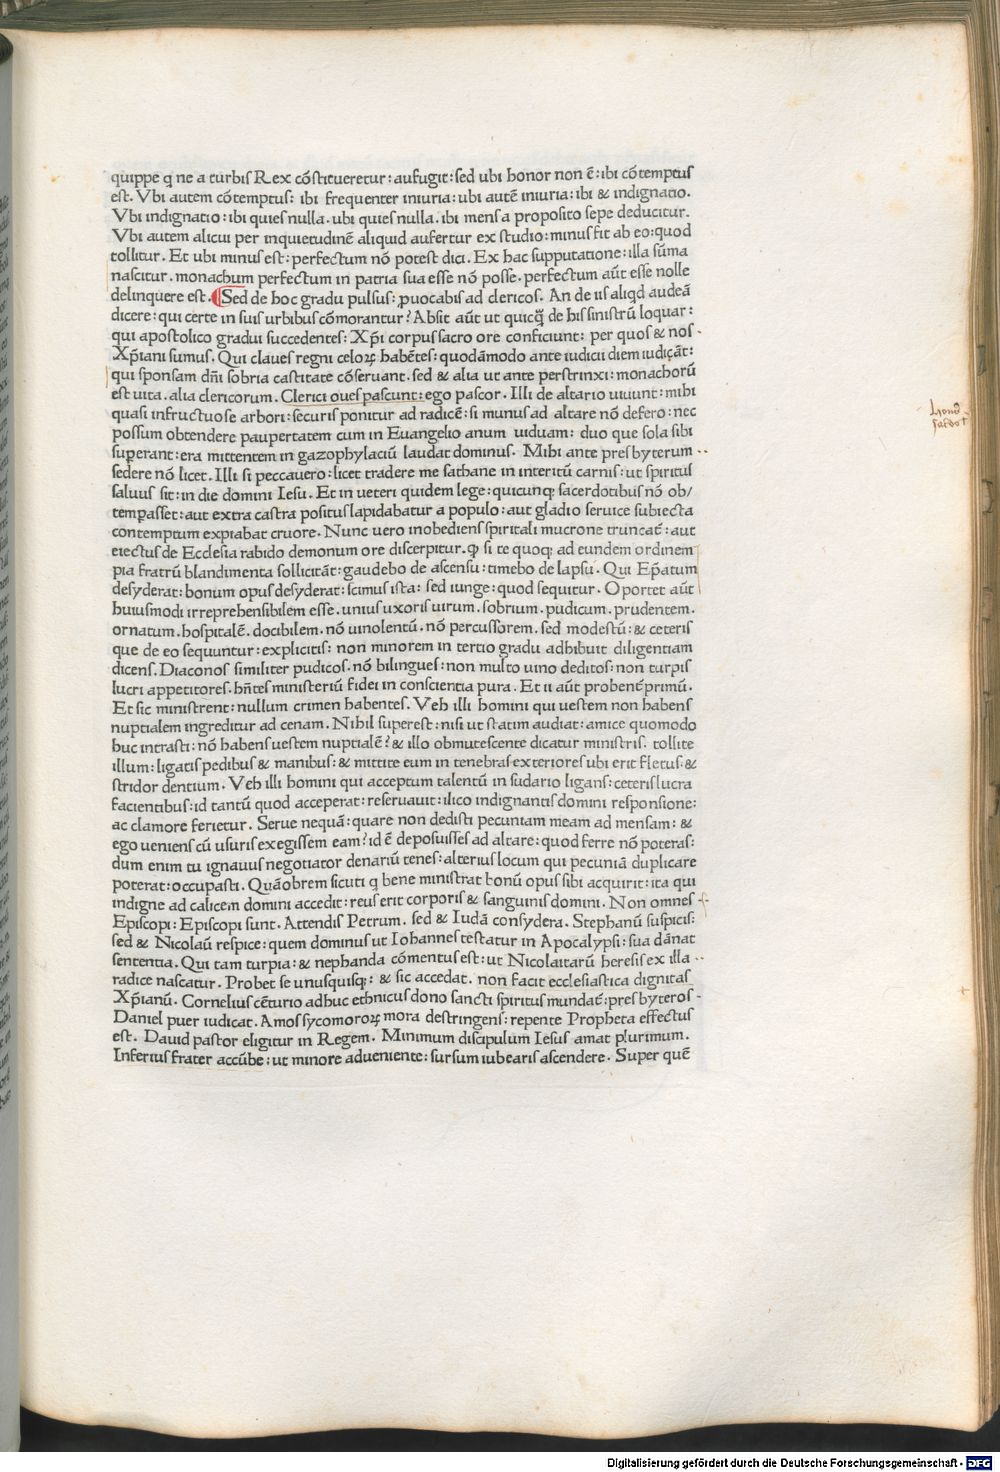 quippe q ne a turbis Rex cōstitueretur: aufugit: sed ubi honor non ē: ibi cōtemptus
est. Vbi autem cōtemptus: ibi frequenter iniuria: ubi autē iniuria: ibi & indignatio.
Vbi indignatio: ibi quies nulla. ubi quies nulla. ibi mens a proposito sepe deducitur.
Vbi autem alicui per inquietudinē aliquid aufertur ex studio: minus fit ab eo: quod
tollitur. Et ubi minus est: perfectum nō potest dici. Ex hac supputatione: illa sūma
nascitur. monachum perfectum in patria sua esse nō posse. perfectum aūt esse nolle
delinquere est. Sed de hoc gradu pulsus: ꝓuocabis ad clericos. An de iis aliqd audeā
dicere: qui certe in suis urbibus cōmorantur? Absit aūt ut quicq̄ de his sinistrū loquar:
qui apostolico gradui succedentes: Xp̄i corpus sacro ore conficiunt: per quos & nos
Xp̄iani sumus. Qui claues regni celoꝝ habētes: quodāmodo ante iudicii diem iudicāt:
qui sponsam dn̄i sobria castitate cōseruant. sed & alia ut ante perstrinxi: monachorū
est uita. alia clericorum. Clerici oues pascunt: ego pascor. Illi de altario uiuunt: mihi
quasi infructuose arbori: securis ponitur ad radicē: si munus ad altare nō defero: nec
possum obtendere paupertatem cum in Euangelio anum uiduam: duo que sola sibi
superant: era mittentem in gazophylaciū laudat dominus. Mihi ante presbyterum
sedere nō licet. Illi si peccauero: licet tradere me sathane in interitū carnis: ut spiritus
saluus sit: in die domini Iesu. Et in ueteri quidem lege: quicunq; sacerdotibus nō ob/
temperasset: aut extra castra positus lapidabatur a populo: aut gladio seruice subiecta
contemptum expiabat cruore. Nunc uero inobediens spiritali mucrone truncat̄: aut
eiectus de Ecclesia rabido demonum ore discerpitur. ꝙ si te quoq; ad eundem ordinem
pia fratrū blandimenta sollicitāt: gaudebo de ascensu: timebo de lapsu. Qui Ep̄atum
desyderat: bonum opus desyderat: scimus ista: sed iunge: quod sequitur. Oportet aūt
huiusmodi irreprehensibilem esse. unius uxoris uirum. sobrium. pudicum. prudentem.
ornatum. hospitalē. docibilem. nō uinolentū. nō percussorem. sed modestū: & ceteris
que de eo sequuntur: explicitis: non minorem in tertio gradu adhibuit diligentiam
dicens. Diaconos similiter pudicos. nō bilingues: non multo uino deditos: non turpis
lucri appetitores. hn̄tes ministeriū fidei in conscientia pura. Et ii aūt probent̄ primū.
Et sic ministrent: nullum crimen habentes. Veh illi homini qui uestem non habens
nuptialem ingreditur ad cenam. Nihil superest: nisi ut statim audiat: amice quomodo
huc intrasti: nō habens uestem nuptialē? & illo obmutescente dicatur ministris. tollite
illum: ligatis pedibus & manibus: & mittite eum in tenebras exteriores ubi erit fletus: &
stridor dentium. Veh illi homini qui acceptum talentū in sudario ligans: ceteris lucra
facientibus: id tantū quod acceperat: reseruauit: ilico indignantis domini responsione:
ac clamore ferietur. Serue nequā: quare non dedisti pecuniam meam ad mensam: &
ego ueniens cū usuris exegissem eam? id ē deposuisses ad altare: quod ferre nō poteras:
dum enim tu ignauus negotiator denariū tenes: alterius locum qui pecuniā duplicare
poterat: occupasti. Quāobrem sicuti q bene ministrat bonū opus sibi acquirit: ita qui
indigne ad calicem domini accedit: reus erit corporis & sanguinis domini. Non omnes
Episcopi: Episcopi sunt. Attendis Petrum. sed & Iudā consydera. Stephanū suspicis:
sed & Nicolaū respice: quem dominus ut Iohannes testatur in Apocalypsi: sua dānat
sententia. Qui tam turpia: & nephanda cōmentus est: ut Nicolaitarū heresis ex illa
radice nascatur. Probet se unusquisq;: & sic accedat. non facit ecclesiastica dignitas
Xp̄ianū. Cornelius cēturio adhuc ethnicus dono sancti spiritus mundat̄: presbyteros
Daniel puer iudicat. Amos sycomoroꝝ mora destringens: repente Propheta effectus
est. Dauid pastor eligitur in Regem. Minimum discipulum Iesus amat plurimum.
Inferius frater accūbe: ut minore adueniente: sursum iubearis ascendere. Super quē
Digitalisierung gefördert durch die Deutsche Forschungsgemeinschaft - DFG